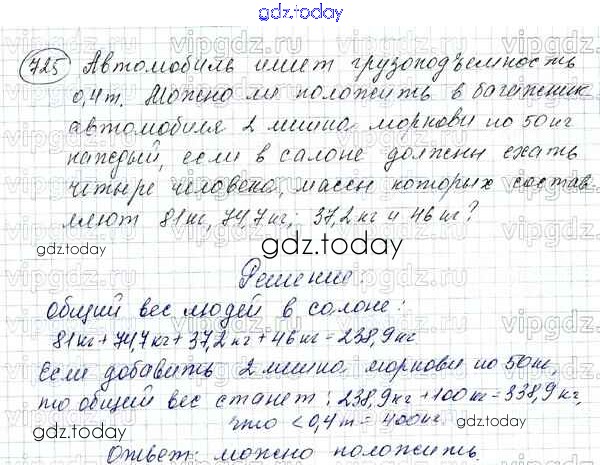 gdz.today
725 Автомобиль имеет грузоподъемность
0,4т. Можно ли положить в багажник
автомобиля 2 мешка моркови по 50кг
каждый, если в салоне должны ехать
четыре человека, массы которых состав-
ляют 81кг, 74,7кг; 37,2кг и 46кг?
gdz.today
Решение:
Общий вес людей в салоне:
81кг+74,7кг+37,2кг+46кг=238,9кг
Если добавить 2 мешка моркови по 50кг,
то общий вес станет: 238,9кг+100кг=338,9кг,
что <0,4т=400кг.
gdz.today
gdz.today
Ответ: можно положить.